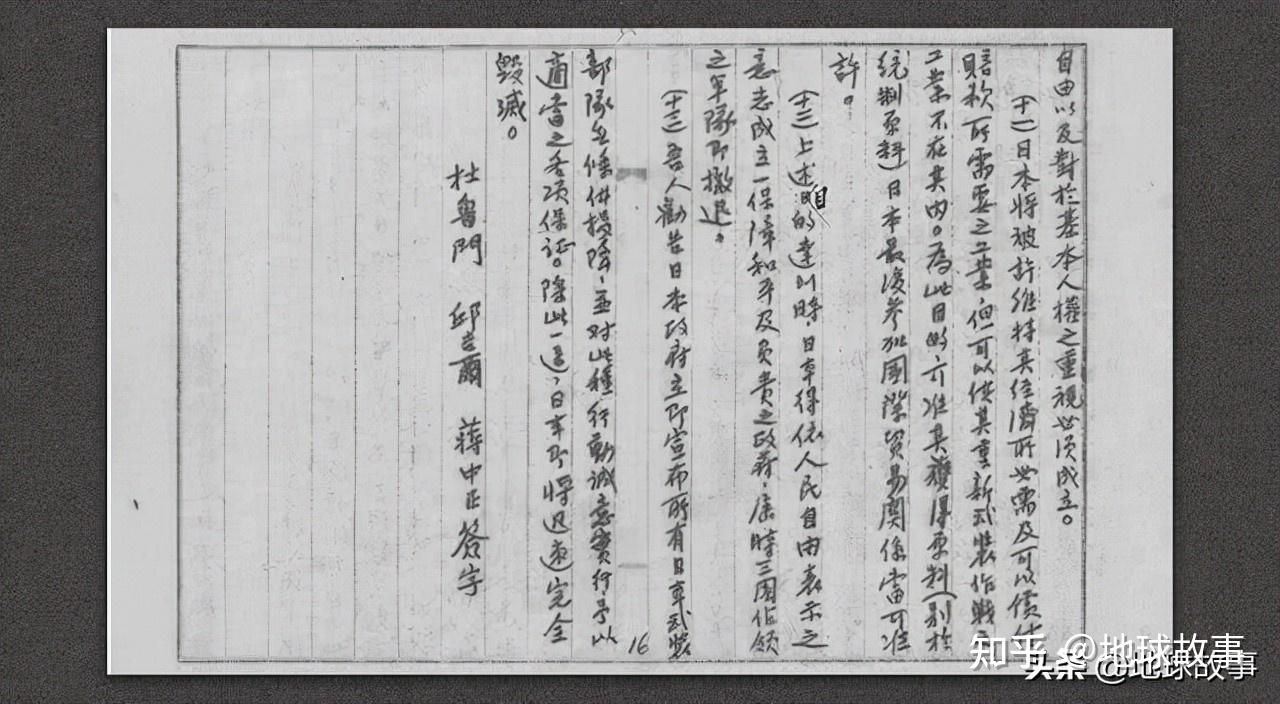 自由以及對於基本人權之重視必須成立。
(十一)日本將被許維持其經濟所必需及可以償付
賠欵所需要之工業,但可以供其重新武裝作戰之
工業不在其內。為此目的,可准其獲得原料(別於
統制原料)日本最後參加國際貿易関係當可准
許。
(十二)上述目的達到時,日本得依人民自由表示之
意志成立一保障和平及負責之政府,届時三國佔領
之軍隊即撤退。
(十三)吾人勸告日本政府立即宣布所有日本武裝
部隊無條件投降,並对此種行動誠意實行予以
適當之各項保证。除此一途,日本即將迅速完全
毀滅。
杜魯門 邱吉爾 蔣中正簽字
16
知乎 @地球故事
头条 @地球故事